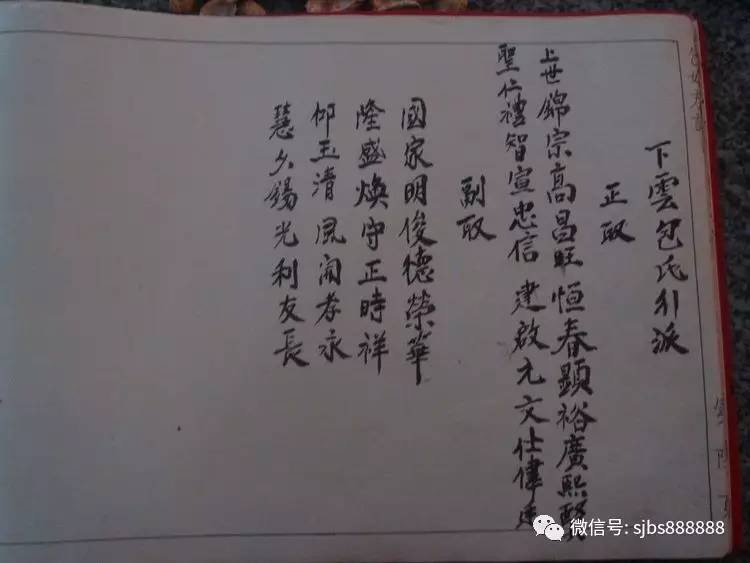 下雲包氏引派
正取
上世錦宗高昌旺恒春顯裕廣熙賢
聖仁禮智宣忠信建啟元文仕偉
副取
國家明俊德榮華
隆盛煥守正時祥
仰玉清風開孝永
慧久錫光利友長
微信号: sjbs888888